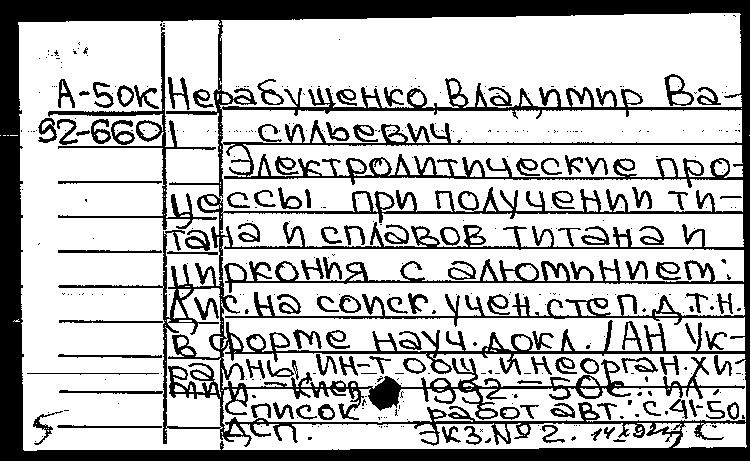 А-50к Нерабущенко, Владимир Ва-
92-6601 сильевич.
Электролитические про-
цессы при получении ти-
тана и сплавов титана и
циркония с алюминием:
Дис. на соиск. учен. степ. д.т.н.
в форме науч. докл. / АН Ук-
раины, ин-т общ. и неорган. хи-
мии. - Киев, 1992. - 50с.: ил.
Список работ авт.: с. 41-50.
5 ДСП. Экз. № 2.